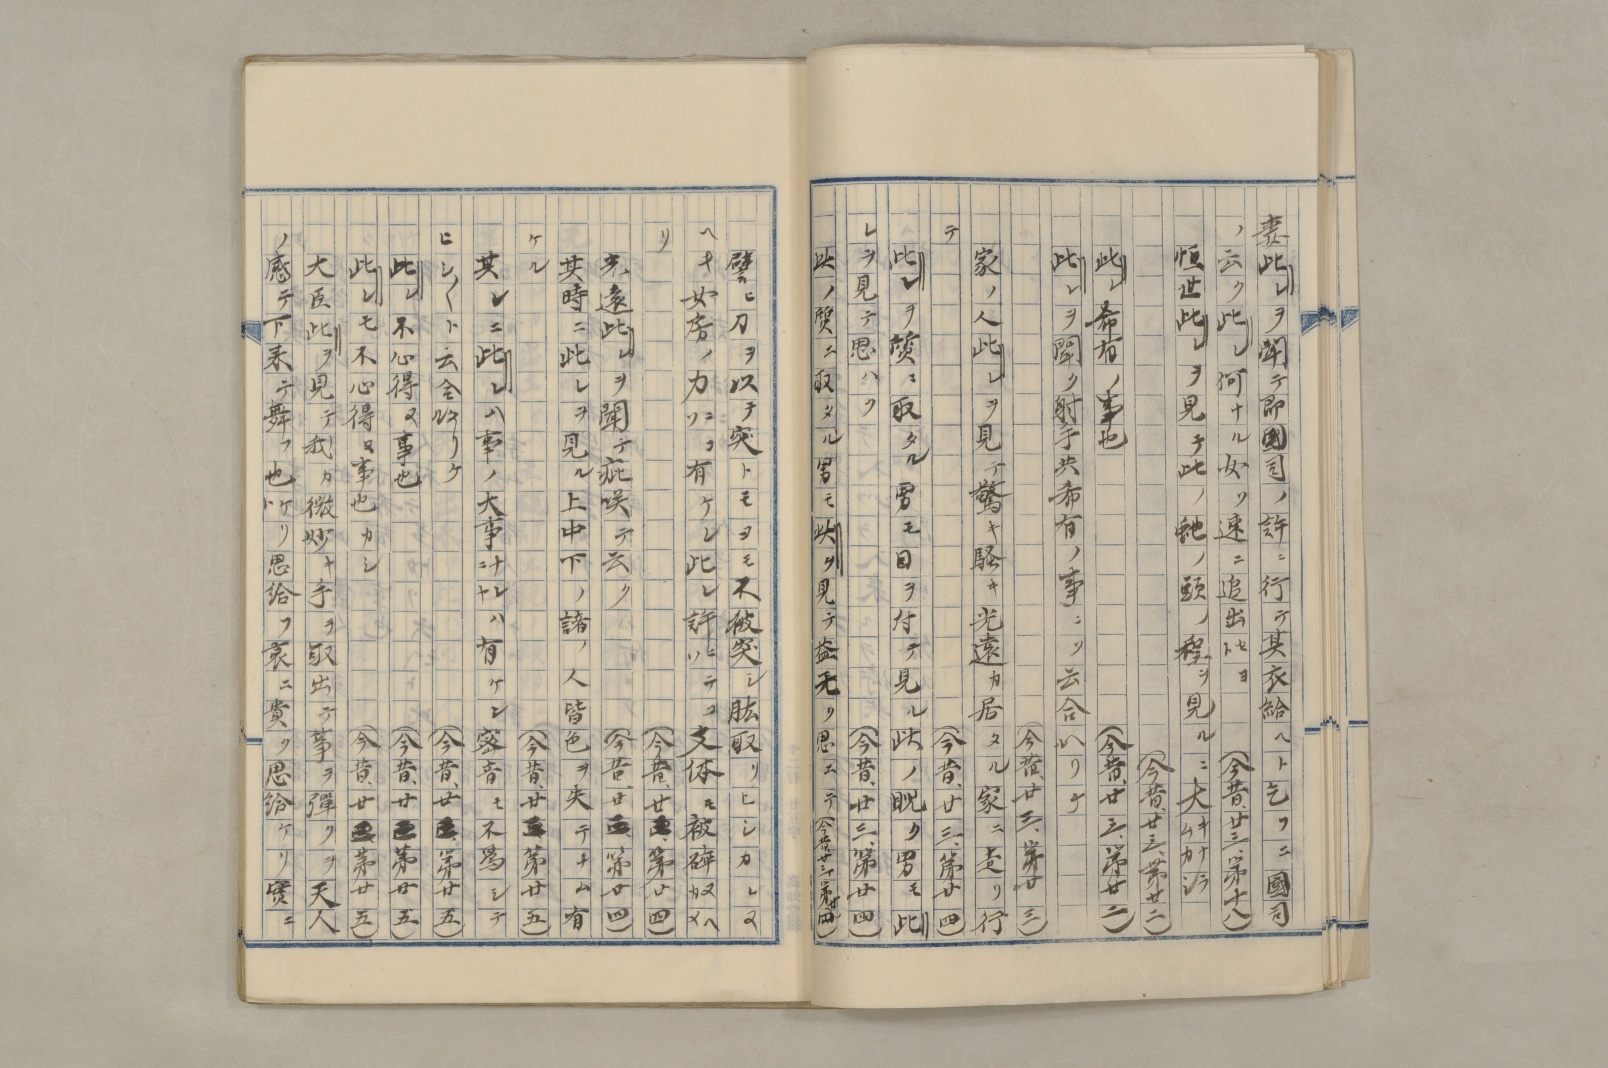 妻此レヲ聞テ即國司ノ許ニ行テ其衣給ヘト乞フニ國司
ノ云ク此レ何ナル女ソ速ニ追出セヨ(今昔、廿三、第十八)
恒世此レヲ見テ此ノ蛇ノ頭ノ程ヲ見ルニ大キナラムカシ
(今昔、廿三、第廿二)
此レ希有ノ事也(今昔、廿三、第廿二)
此レヲ聞ク射手共希有ノ事ニソ云合ヘリケ
(今昔、廿三、第廿三)
家ノ人此レヲ見テ驚キ騒キ光遠カ居タル家ニ走リ行
テ(今昔、廿三、第廿四)
此レヲ質ニ取タル男モ目ヲ付テ見ル此ノ睨ク男モ此
レヲ見テ思ハク(今昔、廿三、第廿四)
此ノ質ニ取タル男モ此ヲ見テ益无ク思エテ(今昔廿三、第廿四)
譬ヒ刀ヲ以テ突トモヨモ不被突シ肱取リヒシカレヌ
ヘキ女房ノ力ニコソ有ケレ此レ許ニテコソ支体モ被碎ヌヘカメ
リ(今昔、廿三、第廿四)
光遠此レヲ聞テ疵咲テ云ク(今昔、廿三、第廿四)
其時ニ此レヲ見ル上中下ノ諸ノ人皆色ヲ失テナム有
ケル(今昔、廿三、第廿五)
其レニ此レハ事ノ大事ニナレハ有ケレ密音モ不為シテ
ヒシ〱ト云合ヘリケ(今昔、廿三、第廿五)
此レ不心得ヌ事也(今昔、廿三、第廿五)
此レモ不心得ヌ事也カシ(今昔、廿三、第廿五)
大臣此ヲ見テ我カ微妙キ手ヲ取出テ箏ヲ彈クヲ天人
ノ感テ下来テ舞フ也ケリ思給フ哀ニ貴ク思給ケリ實ニ